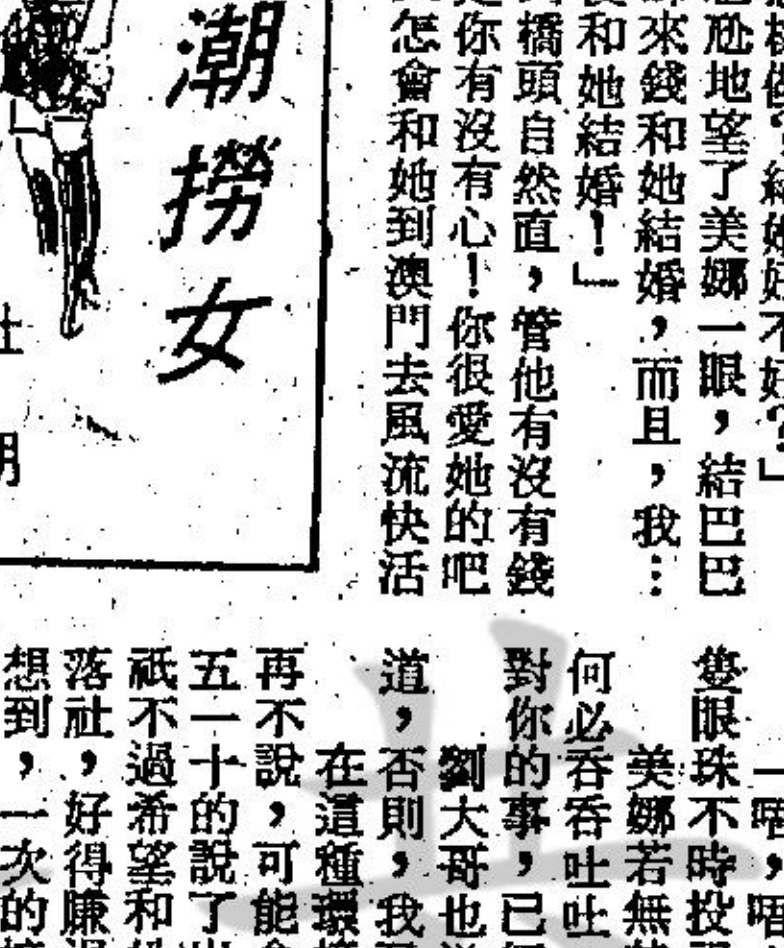 樣做？結婚好不好？」
尬地望了美娜一眼，結巴巴
來錢和她結婚，而且，我…
和她結婚！」
橋頭自然直，管他有沒有錢
你有沒有心！你很愛她的吧
怎會和她到澳門去風流快活
潮撈女
「唔，唔
隻眼珠不時投
美娜若無
何必吞吞吐吐
對你的事，已
劉大哥也
道，否則，我
在這種環
再不說，可能會
五一十的說了出
祇不過希望和她
落社，好得賺
想到，一次的